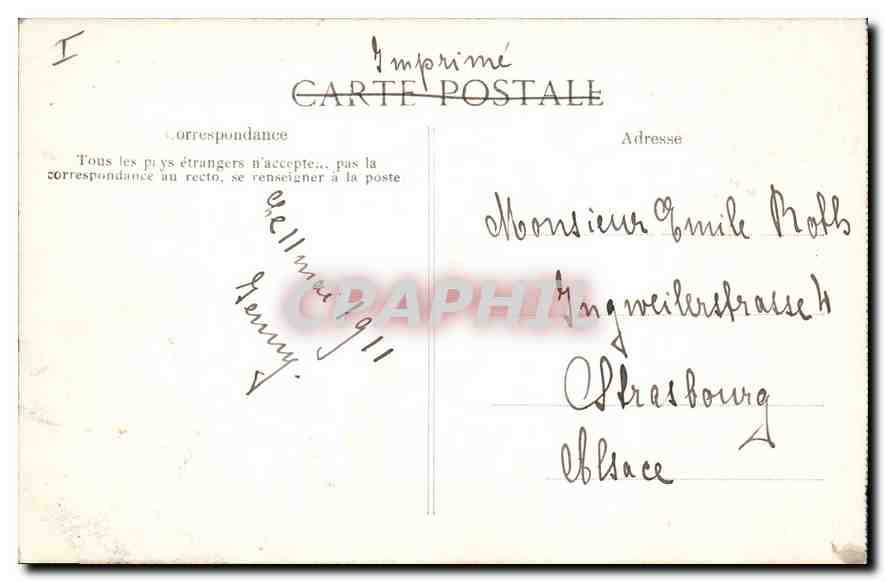 I
Imprimé
CARTE POSTALE
Correspondance
Tous les pays étrangers n'accepte... pas la
correspondance au recto, se renseigner à la poste
Le 11 mai 1911
Jenny.
Adresse
Monsieur Emile Roth
Ingweilerstrasse 4
Strasbourg
Alsace
CPAPHIL